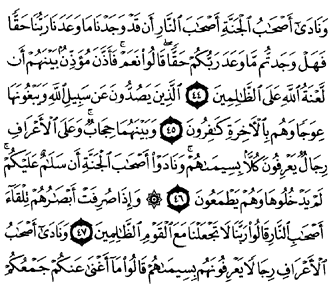 وَنَادَىٰٓ أَصْحَٰبُ ٱلْجَنَّةِ أَصْحَٰبَ ٱلنَّارِ أَن قَدْ وَجَدْنَا مَا وَعَدَنَا رَبُّنَا حَقًّا
فَهَلْ وَجَدتُّم مَّا وَعَدَ رَبُّكُمْ حَقًّا ۖ قَالُوا۟ نَعَمْ ۚ فَأَذَّنَ مُؤَذِّنٌۢ بَيْنَهُمْ أَن
لَّعْنَةُ ٱللَّهِ عَلَى ٱلظَّٰلِمِينَ ٤٤ ٱلَّذِينَ يَصُدُّونَ عَن سَبِيلِ ٱللَّهِ وَيَبْغُونَهَا
عِوَجًا وَهُم بِٱلْءَاخِرَةِ كَٰفِرُونَ ٤٥ وَبَيْنَهُمَا حِجَابٌ ۚ وَعَلَى ٱلْأَعْرَافِ
رِجَالٌ يَعْرِفُونَ كُلًّۢا بِسِيمَىٰهُمْ ۚ وَنَادَوْا۟ أَصْحَٰبَ ٱلْجَنَّةِ أَن سَلَٰمٌ عَلَيْكُمْ ۚ
لَمْ يَدْخُلُوهَا وَهُمْ يَطْمَعُونَ ٤٦ ۞ وَإِذَا صُرِفَتْ أَبْصَٰرُهُمْ تِلْقَآءَ
أَصْحَٰبِ ٱلنَّارِ قَالُوا۟ رَبَّنَا لَا تَجْعَلْنَا مَعَ ٱلْقَوْمِ ٱلظَّٰلِمِينَ ٤٧ وَنَادَىٰٓ أَصْحَٰبُ
ٱلْأَعْرَافِ رِجَالًا يَعْرِفُونَهُم بِسِيمَىٰهُمْ قَالُوا۟ مَآ أَغْنَىٰ عَنكُمْ جَمْعُكُمْ